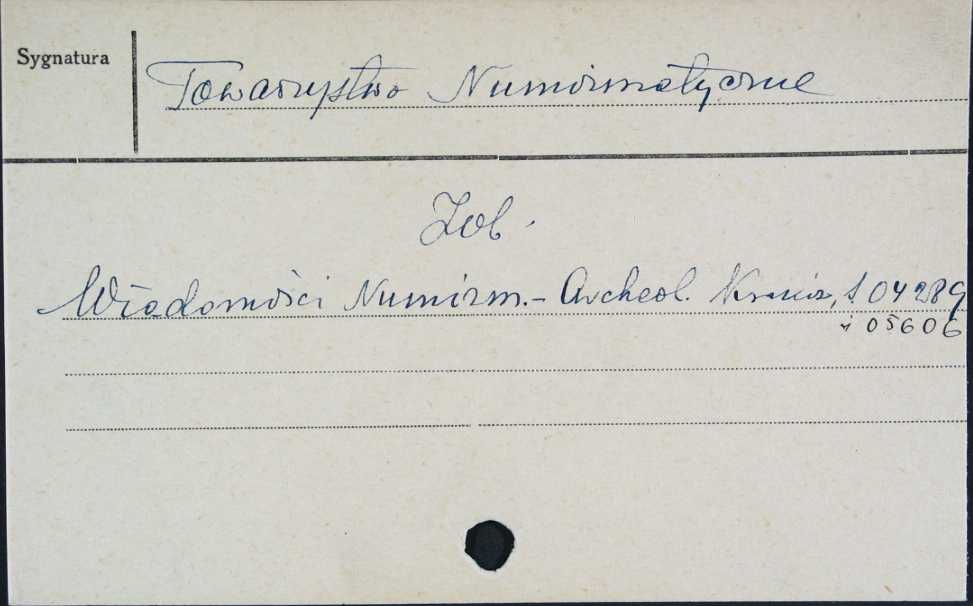 Sygnatura
Towarzystwo Numizmatyczne
Zob.
Wiadomości Numizm.- Archeol. Kraków, I 04289
i 05606